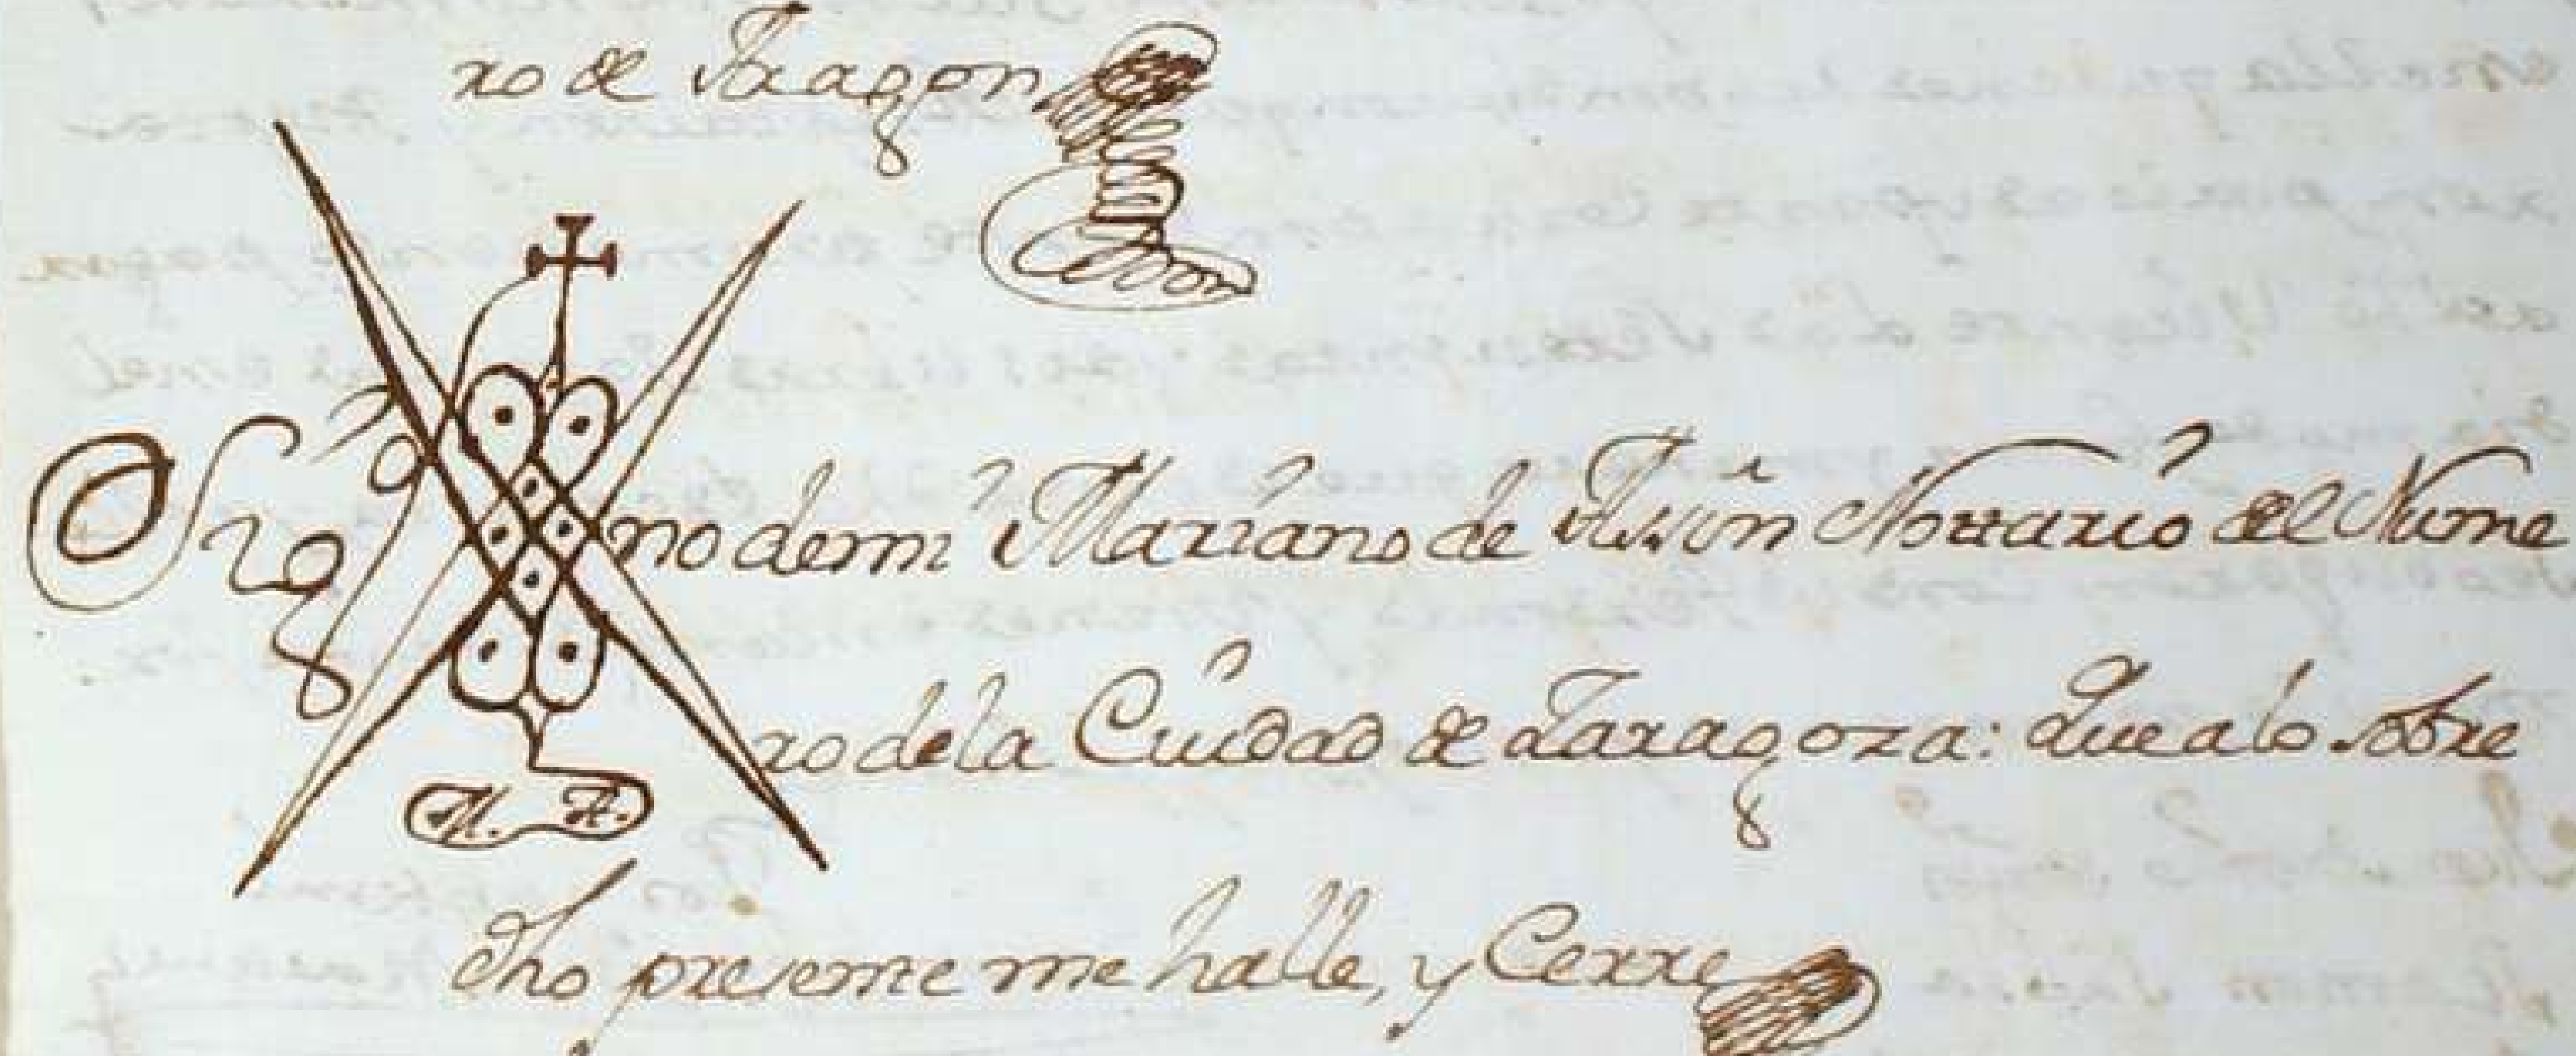 ro de Aragon
Sig no de mi Mariano de Assin Nottario del Nume
ro de la Ciudad de Zaragoza: Que a lo sobre
M. A.
dho presente me halle, y Cerre